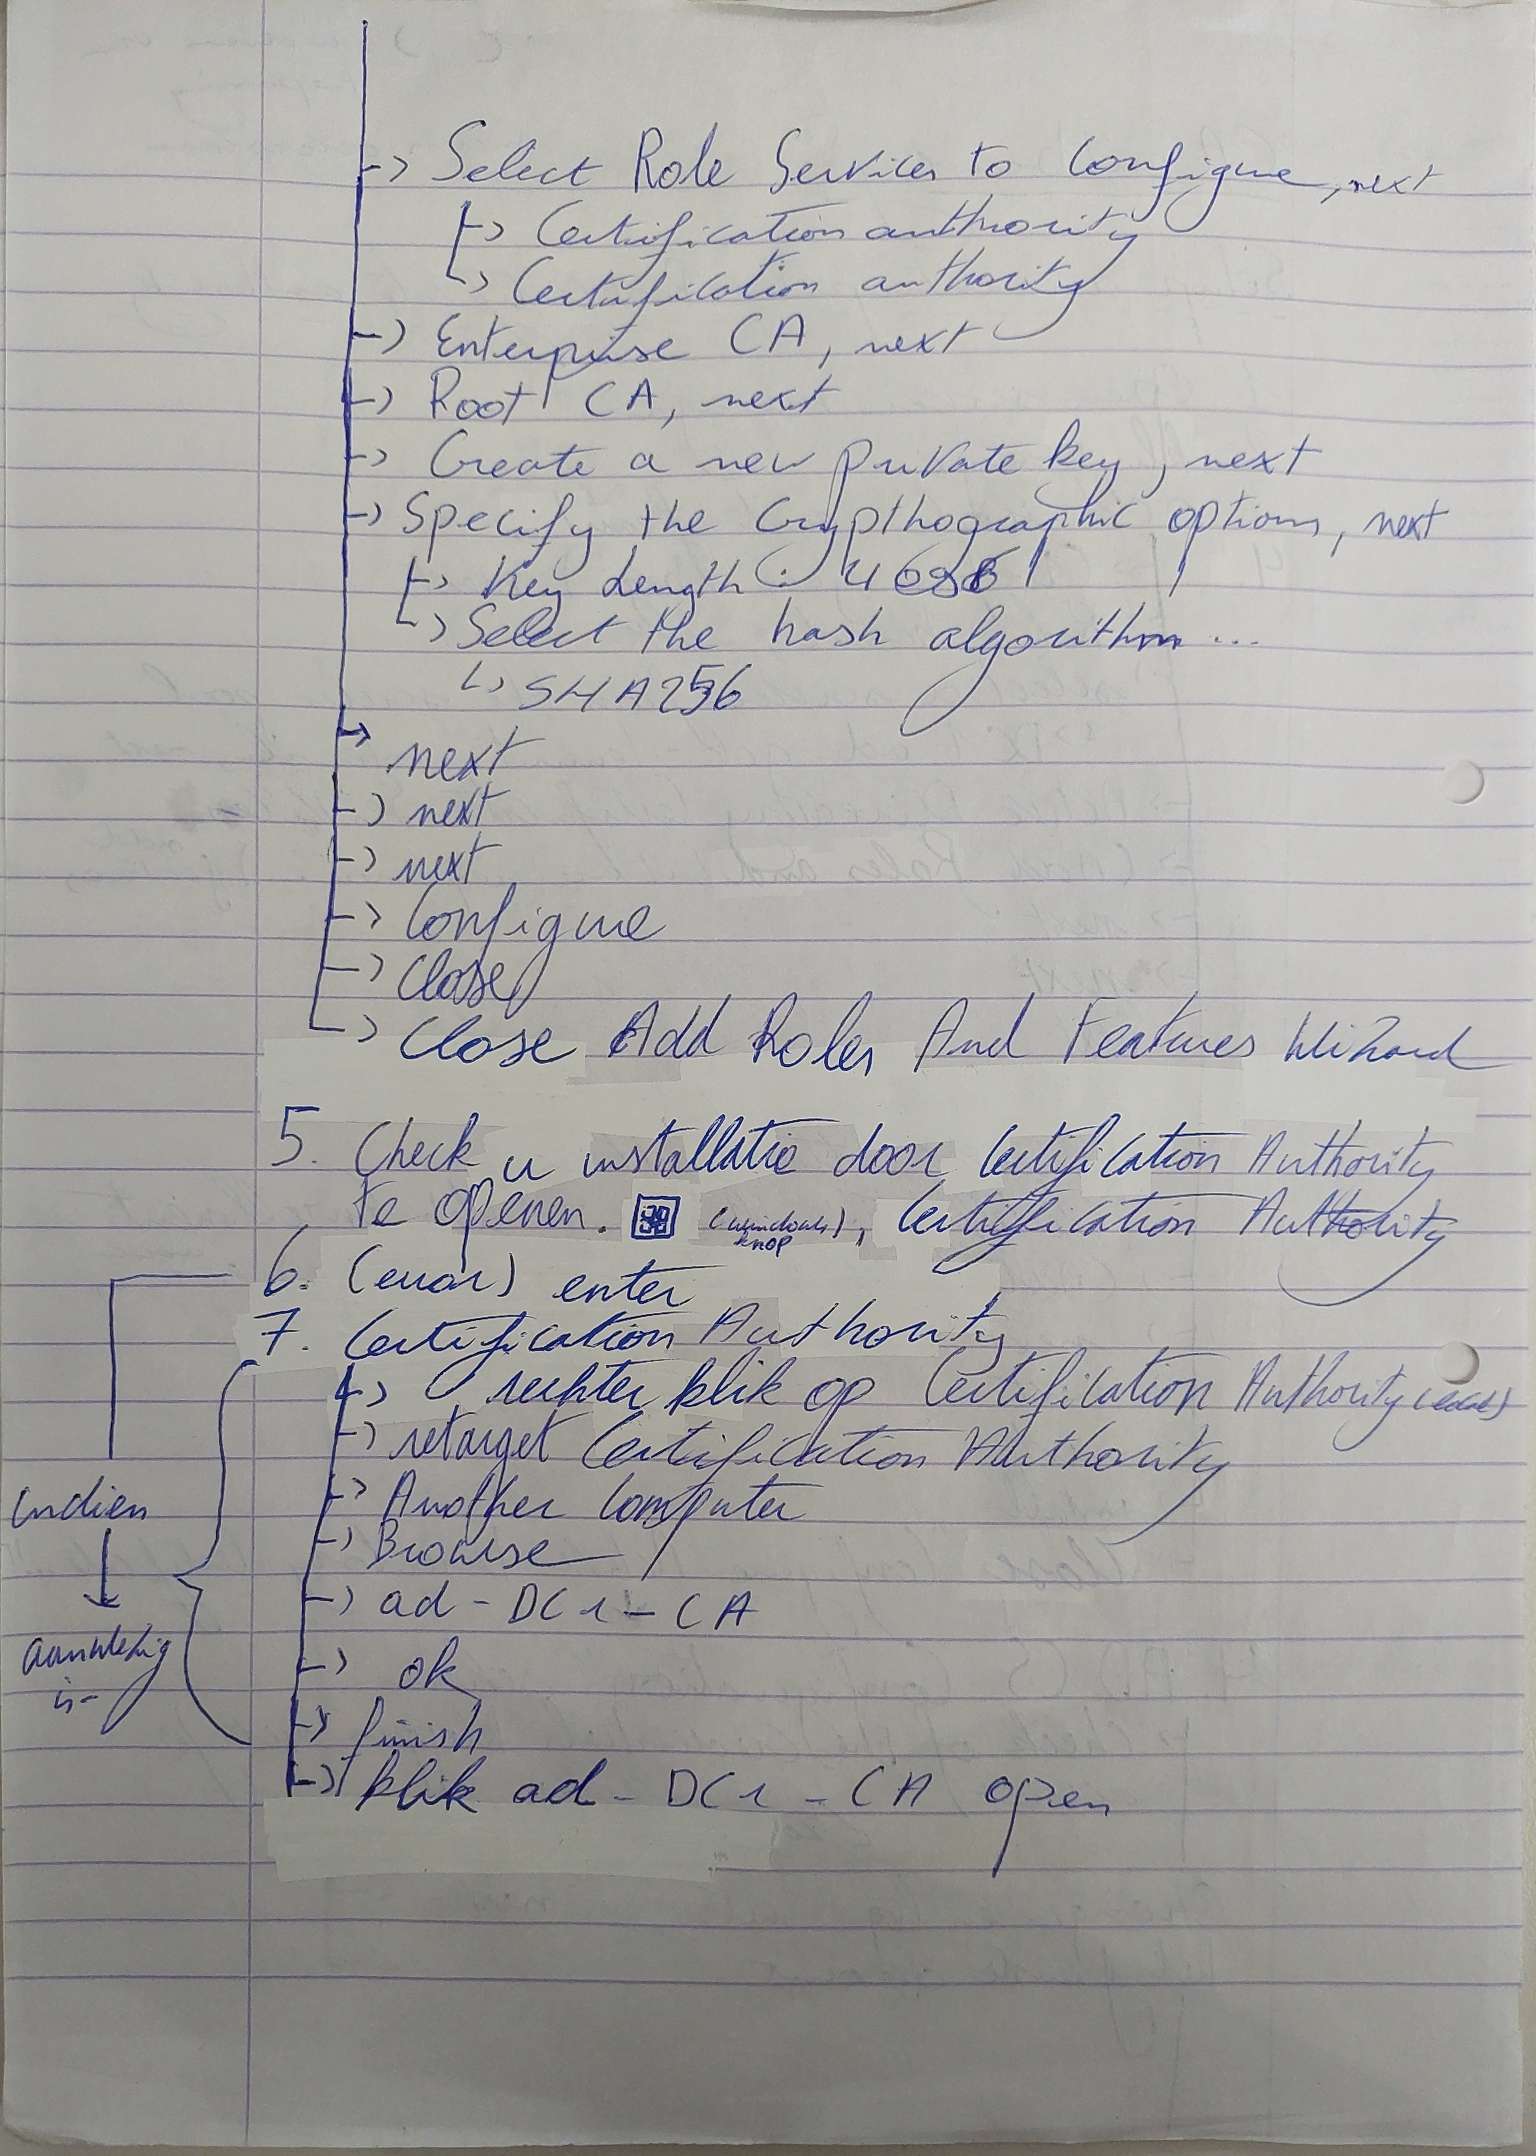 -> Select Role Services to configure, next
-> Certification authority
-> Certification authority
-> Enterprise CA, next
-> Root CA, next
-> Create a new private key, next
-> Specify the Crypthographic options, next
-> Key Length : 4096
-> Select the hash algorithm ...
-> SHA256
-> next
-> next
-> next
-> Configure
-> Close
-> Close Add Roles And Features Wizard
5. Check u installatie door Certification Authority
te openen. (windows knop), Certification Authority
6. (error) enter
7. Certification Authority
-> rechter klik op Certification Authority
-> retarget Certification Authority
-> Another Computer
-> Browse
-> ad-DC1-CA
-> ok
-> finish
-> klik ad-DC1-CA open
indien
aanwezig
is-